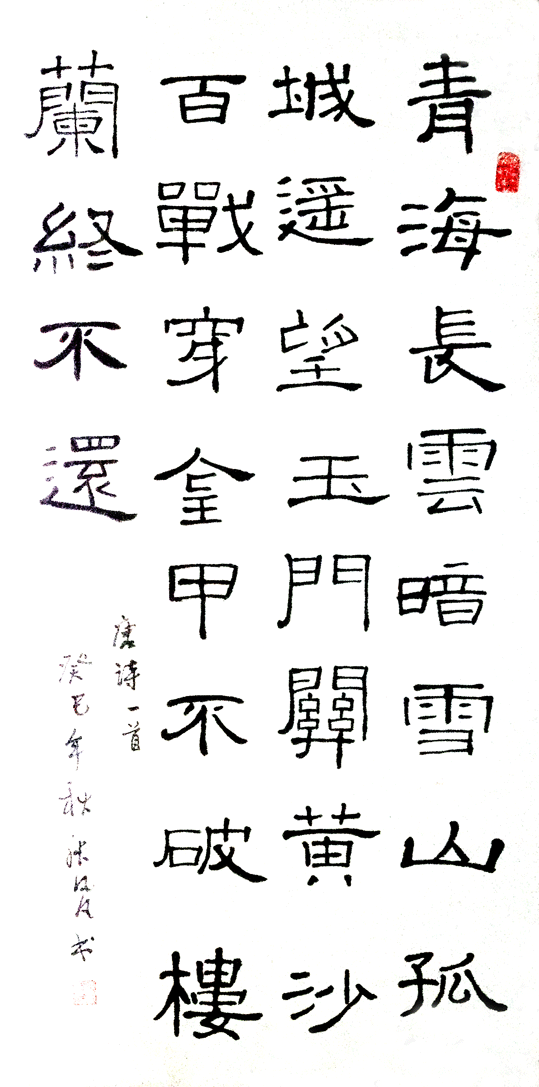 青海長雲暗雪山孤
城遥望玉門關黄沙
百戰穿金甲不破樓
蘭終不還
唐詩一首
癸巳年秋
书